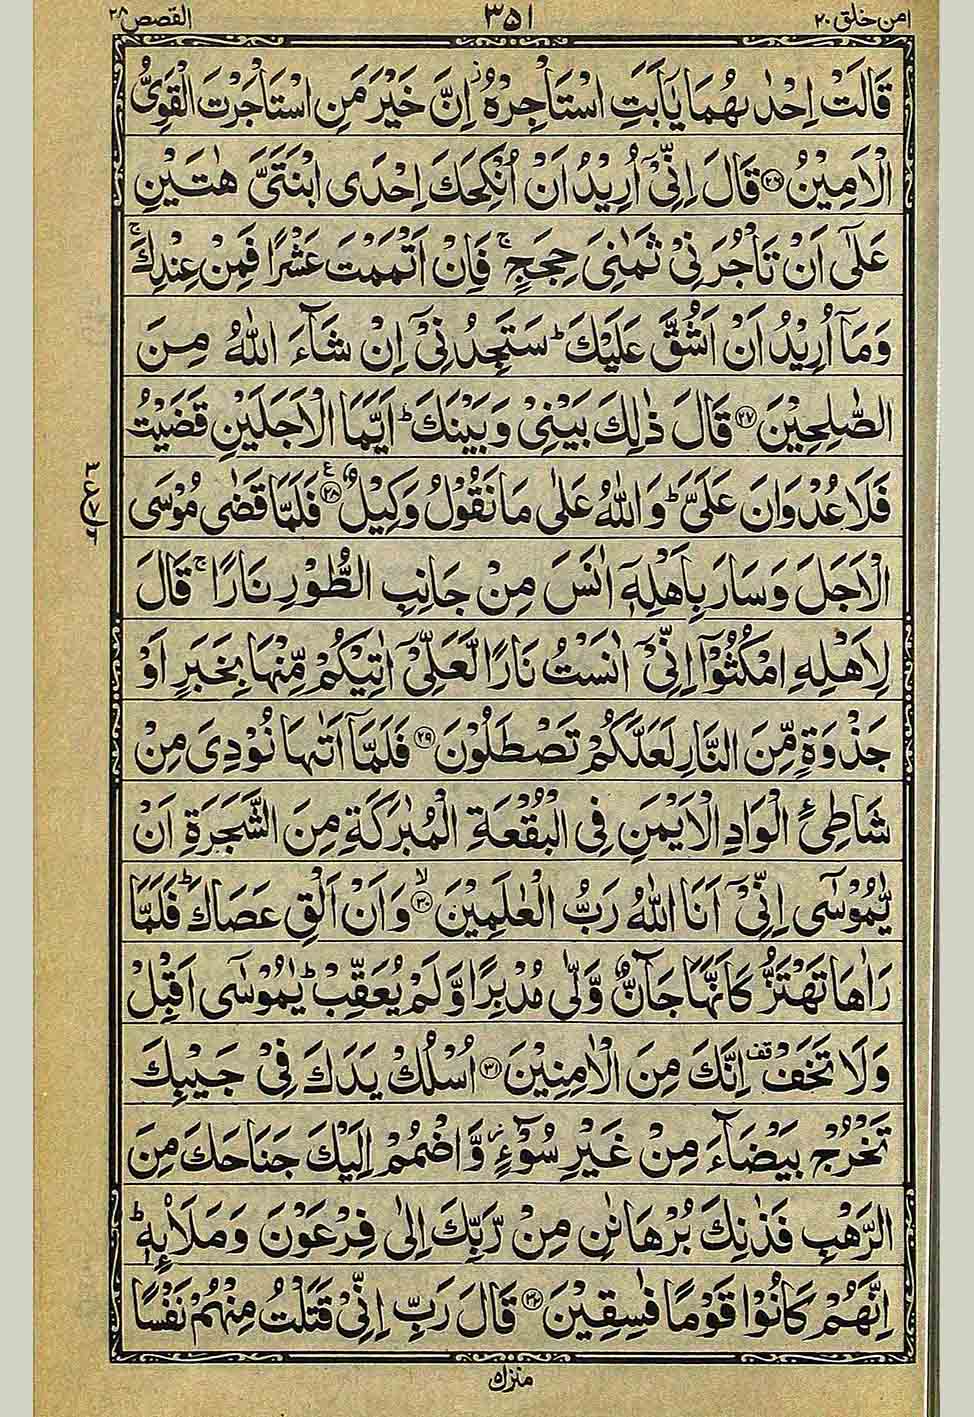 امن خلق ٢٠ ٣٥١ القصص ٢٨
قَالَتْ اِحْدٰىهُمَا يٰۤاَبَتِ اسْتَاْجِرْهُ ؗ اِنَّ خَيْرَ مَنِ اسْتَاْجَرْتَ الْقَوِىُّ
الْاَمِيْنُ ﴿٢٦﴾ قَالَ اِنِّىْۤ اُرِيْدُ اَنْ اُنْكِحَكَ اِحْدَى ابْنَتَىَّ هٰتَيْنِ
عَلٰۤى اَنْ تَاْجُرَنِىْ ثَمٰنِىَ حِجَجٍ ۚ فَاِنْ اَتْمَمْتَ عَشْرًا فَمِنْ عِنْدِكَ ۚ
وَمَاۤ اُرِيْدُ اَنْ اَشُقَّ عَلَيْكَ ؕ سَتَجِدُنِىْۤ اِنْ شَآءَ اللّٰهُ مِنَ
الصّٰلِحِيْنَ ﴿٢٧﴾ قَالَ ذٰلِكَ بَيْنِىْ وَبَيْنَكَ ؕ اَيَّمَا الْاَجَلَيْنِ قَضَيْتُ
فَلَا عُدْوَانَ عَلَىَّ ؕ وَاللّٰهُ عَلٰى مَا نَقُوْلُ وَكِيْلٌ ﴿٢٨﴾ ع فَلَمَّا قَضٰى مُوْسَى
الْاَجَلَ وَسَارَ بِاَهْلِهٖۤ اٰنَسَ مِنْ جَانِبِ الطُّوْرِ نَارًا ۚ قَالَ
لِاَهْلِهِ امْكُثُوْۤا اِنِّىْۤ اٰنَسْتُ نَارًا لَّعَلِّىْۤ اٰتِيْكُمْ مِّنْهَا بِخَبَرٍ اَوْ
جَذْوَةٍ مِّنَ النَّارِ لَعَلَّكُمْ تَصْطَلُوْنَ ﴿٢٩﴾ فَلَمَّاۤ اَتٰىهَا نُوْدِىَ مِنْ
شَاطِئِ الْوَادِ الْاَيْمَنِ فِى الْبُقْعَةِ الْمُبٰرَكَةِ مِنَ الشَّجَرَةِ اَنْ
يّٰمُوْسٰۤى اِنِّىْۤ اَنَا اللّٰهُ رَبُّ الْعٰلَمِيْنَ ﴿٣٠﴾ ۙ وَاَنْ اَلْقِ عَصَاكَ ؕ فَلَمَّا
رَاٰهَا تَهْتَزُّ كَاَنَّهَا جَآنٌّ وَّلّٰى مُدْبِرًا وَّلَمْ يُعَقِّبْ ؕ يٰمُوْسٰۤى اَقْبِلْ
وَلَا تَخَفْ قف اِنَّكَ مِنَ الْاٰمِنِيْنَ ﴿٣١﴾ اُسْلُكْ يَدَكَ فِىْ جَيْبِكَ
تَخْرُجْ بَيْضَآءَ مِنْ غَيْرِ سُوْٓءٍ ؗ وَّاضْمُمْ اِلَيْكَ جَنَاحَكَ مِنَ
الرَّهْبِ فَذٰنِكَ بُرْهَانٰنِ مِنْ رَّبِّكَ اِلٰى فِرْعَوْنَ وَمَلَا۟ئِهٖ ؕ
اِنَّهُمْ كَانُوْا قَوْمًا فٰسِقِيْنَ ﴿٣٢﴾ قَالَ رَبِّ اِنِّىْ قَتَلْتُ مِنْهُمْ نَفْسًا
منزل ٥